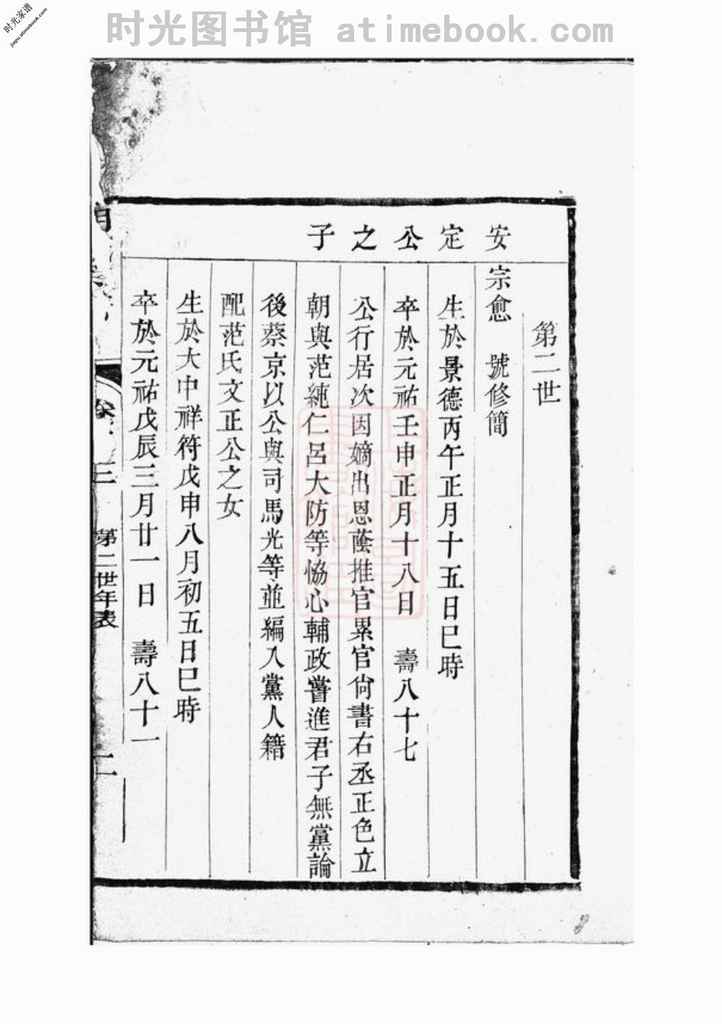 时光图书馆 atimebook.com
时光家谱
jiapu.atimebook.com
第二世
安定公之子
宗愈 號修簡
生於景德丙午正月十五日巳時
卒於元祐壬申正月十八日 壽八十七
公行居次因嫡出恩蔭推官累官尙書右丞正色立
朝與范純仁呂大防等恊心輔政嘗進君子無黨論
後蔡京以公與司馬光等並編入黨人籍
配范氏文正公之女
生於大中祥符戊申八月初五日巳時
卒於元祐戊辰三月廿一日 壽八十一
卷
三
第二世年表
二
8